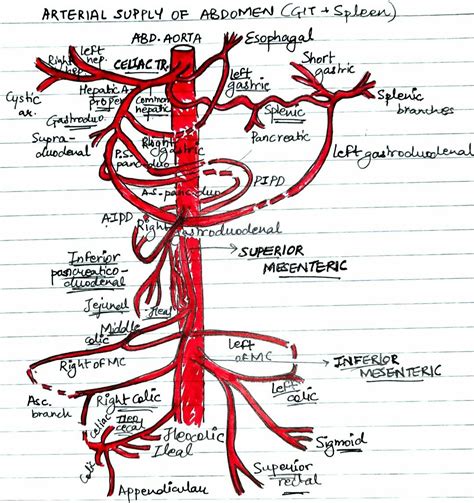 ARTERIAL SUPPLY OF ABDOMEN (GIT + Spleen)
ABD. AORTA
Esophagal
Left
hep.
Right
hep.
CELIAC TR.
Short
gastric
Left
gastric
Cystic
ar.
Hepatic A.
proper
Common
hepatic
Splenic
Splenic
branches
Gastroduo.
Supra-
duodenal
Right
gastric
Pancreatic
Left gastroduodenal
P.S-
pancduo
A-S-pancduo
PIPD
AIPD
Right gastroduodenal
SUPERIOR
MESENTERIC
Inferior
pancreatico-
duodenal
Jejunal
Ileal
Middle
colic
Right of MC
Left
of MC
INFERIOR
MESENTERIC
Asc.
branch
Right Colic
Left
colic
Ileo
cecal
Ileocolic
Ileal
Sigmoid
Superior
rectal
Appendicular